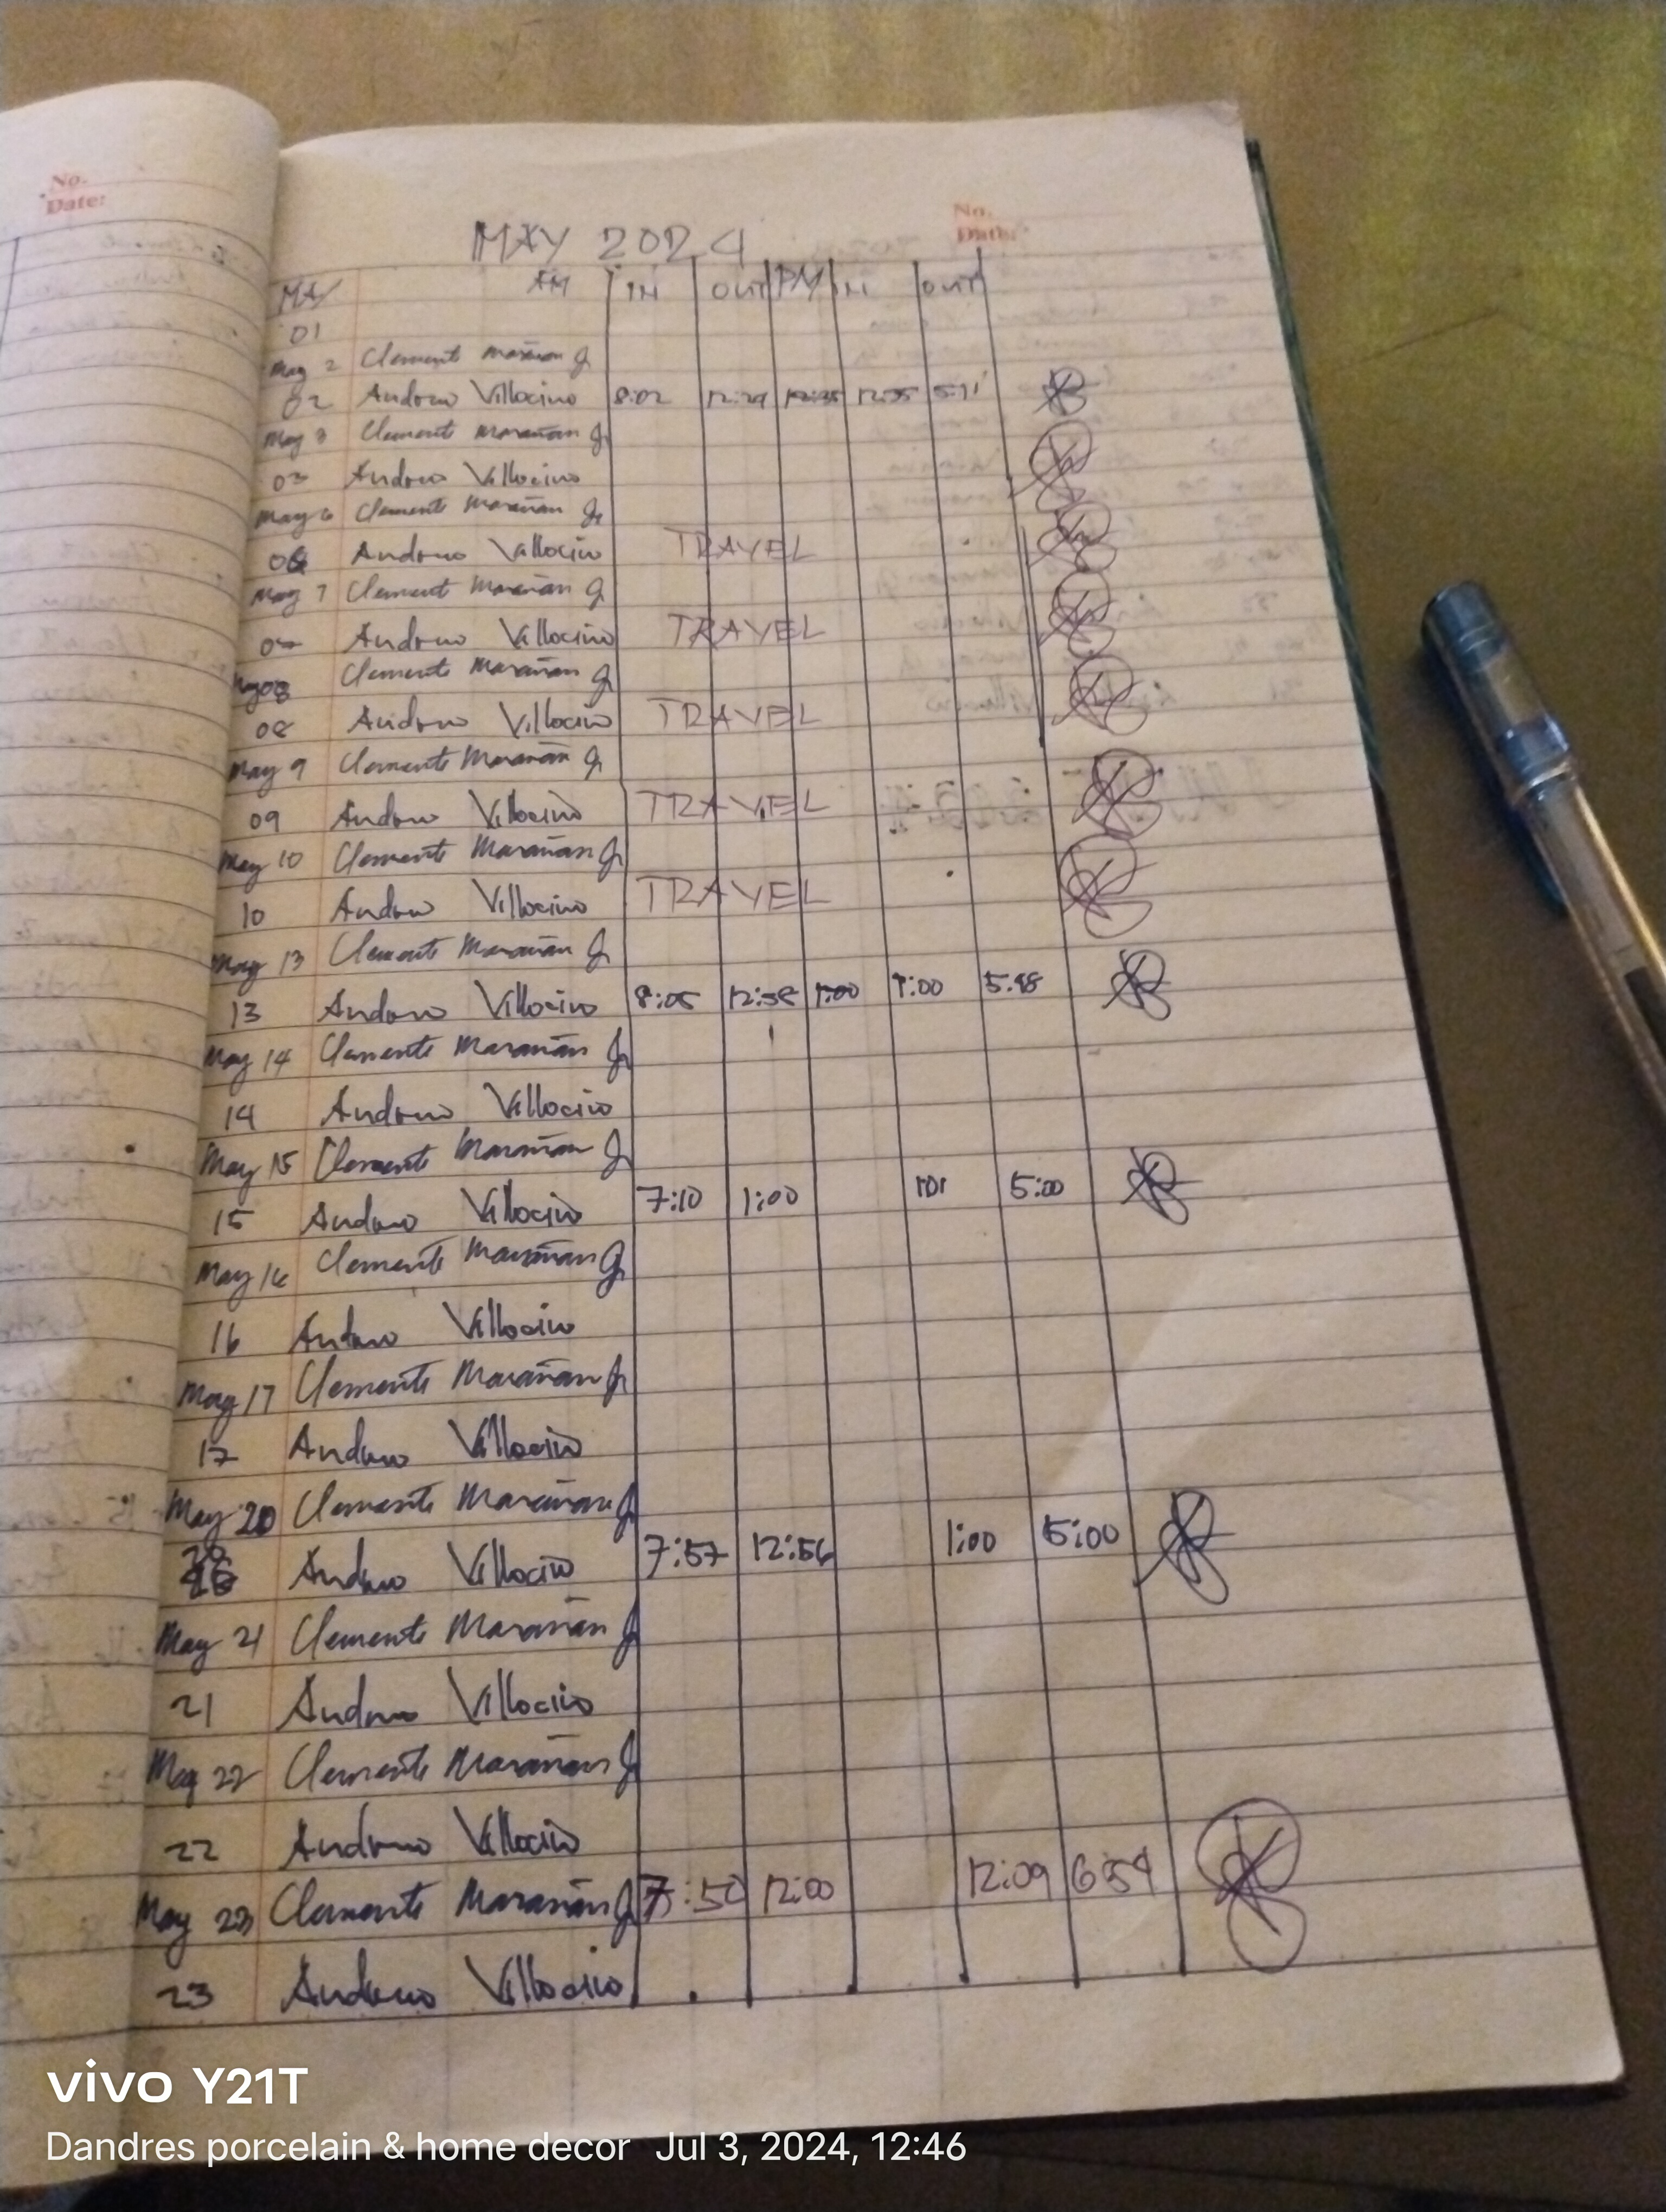 No.
Date:
No.
Date:
MAY 2024
MAY AM IN OUT PM IN OUT
01
May 2 Clemente Marañan Jr
02 Andrew Villocino 8:02 12:29 12:35 5:11
May 3 Clemente Marañan Jr
03 Andrew Villocino
May 6 Clemente Marañan Jr
06 Andrew Villocino TRAVEL
May 7 Clemente Marañan Jr
07 Andrew Villocino TRAVEL
May 08 Clemente Marañan Jr
08 Andrew Villocino TRAVEL
May 9 Clemente Marañan Jr
09 Andrew Villocino TRAVEL
May 10 Clemente Marañan Jr
10 Andrew Villocino TRAVEL
May 13 Clemente Marañan Jr
13 Andrew Villocino 8:05 12:58 1:00 1:00 5:48
May 14 Clemente Marañan Jr
14 Andrew Villocino
May 15 Clemente Marañan Jr
15 Andrew Villocino 7:10 1:00 5:00
May 16 Clemente Marañan Jr
16 Andrew Villocino
May 17 Clemente Marañan Jr
17 Andrew Villocino
May 20 Clemente Marañan Jr
20 Andrew Villocino 7:57 12:56 1:00 5:00
May 21 Clemente Marañan Jr
21 Andrew Villocino
May 22 Clemente Marañan Jr
22 Andrew Villocino
May 23 Clemente Marañan Jr 7:50 12:00 12:09 6:54
23 Andrew Villocino
vivo Y21T
Dandres porcelain & home decor Jul 3, 2024, 12:46